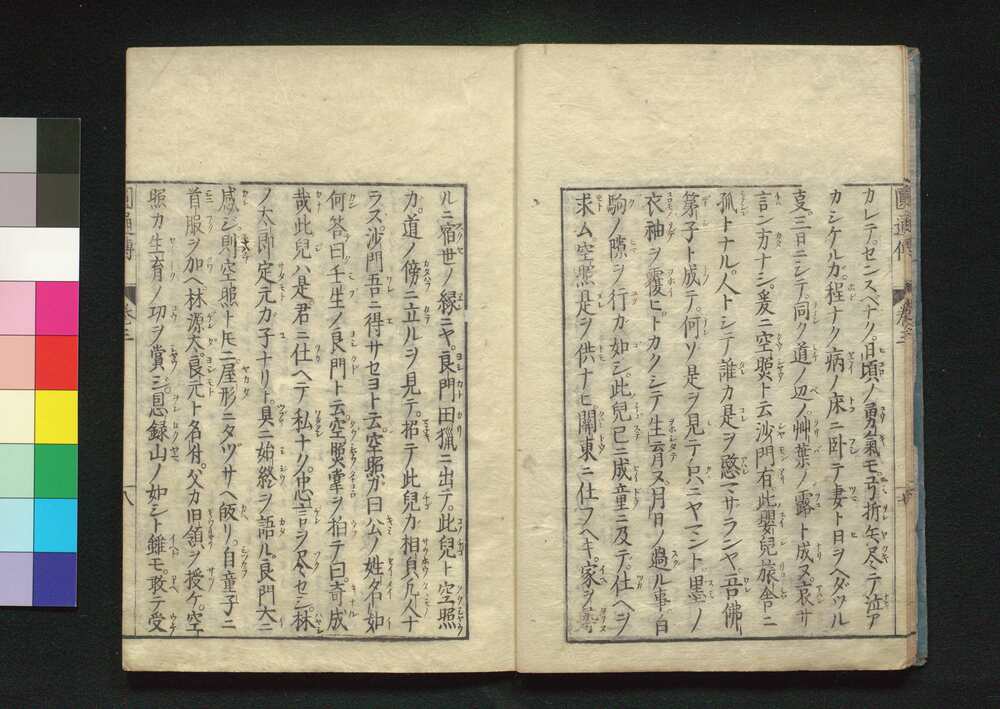 カレテ。センスベナク。日頃ノ勇氣モ弓折矢尽テ泣ア
カシケルカ。程ナク病ノ床ニ卧テ妻ト日ヲヘダツル
事三日ニシテ。同ク道ノ辺ノ艸葉ノ露ト成ヌ。哀サ
言ン方ナシ。爰ニ空照ト云沙門有。此嬰兒旅舎ニ
孤トナル。人トシテ誰カ是ヲ愍マサランヤ。吾佛
第子ト成テ。何ソ是ヲ見テ只ニヤマント。墨ノ
衣袖ヲ覆ヒ。トカクシテ生育ヌ。月日ノ過ル事白
駒ノ隙ヲ行カ如シ。此兒已ニ成童ニ及テ。仕ヘヲ
求ム。空照是ヲ供ナヒ。關東ニ仕フヘキ。家ヲ
ルニ宿世ノ縁ニヤ。良門田獵ニ出テ。此兒ト空照
カ。道ノ傍ニ立ルヲ見テ。招テ此兒カ相貝凡人ナ
ラス。沙門吾ニ得サセヨト云。空照カ曰公ノ姓名如
何。答曰壬生ノ良門ト云。空照掌ヲ拍テ曰奇成
哉此兒ハ是。君ニ仕ヘテ私ナク。忠言ヲ尽セシ。林
ノ太郎定元カ子ナリト。具ニ始終ヲ語ル。良門大ニ
感シ。則空照ト尼ニ屋形ニタヅサヘ皈リ。自童子ニ
首服ヲ加ヘ。林源太。良元ト名付。父カ旧領ヲ授ケ。空
照カ生育ノ功ヲ賞シ。恩録山ノ如シト雖モ。敢テ受